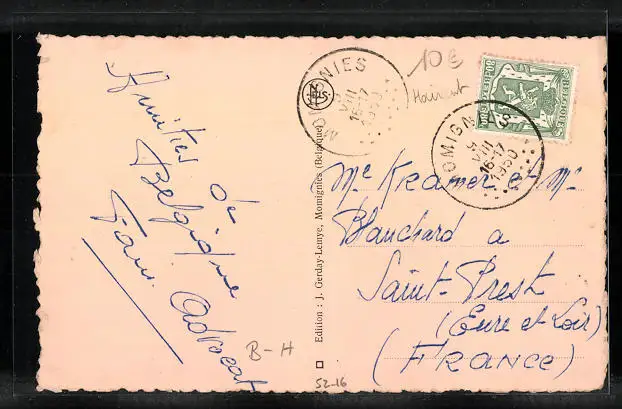 Amitiés de
Belgique
Fam. Advocat
B-H
Edition : J. Gerday-Lemye, Momignies (Belgique)
52-16
MOMIGNIES
VIII
16-17
1950
10€
Hainaut
BELGIQUE-BELGIË
MOMIGNIES
9
VIII
16-17
1950
Mc Kramer et Mc
Blanchard a
Saint-Prest
(Eure et Loir)
(FRANCE)